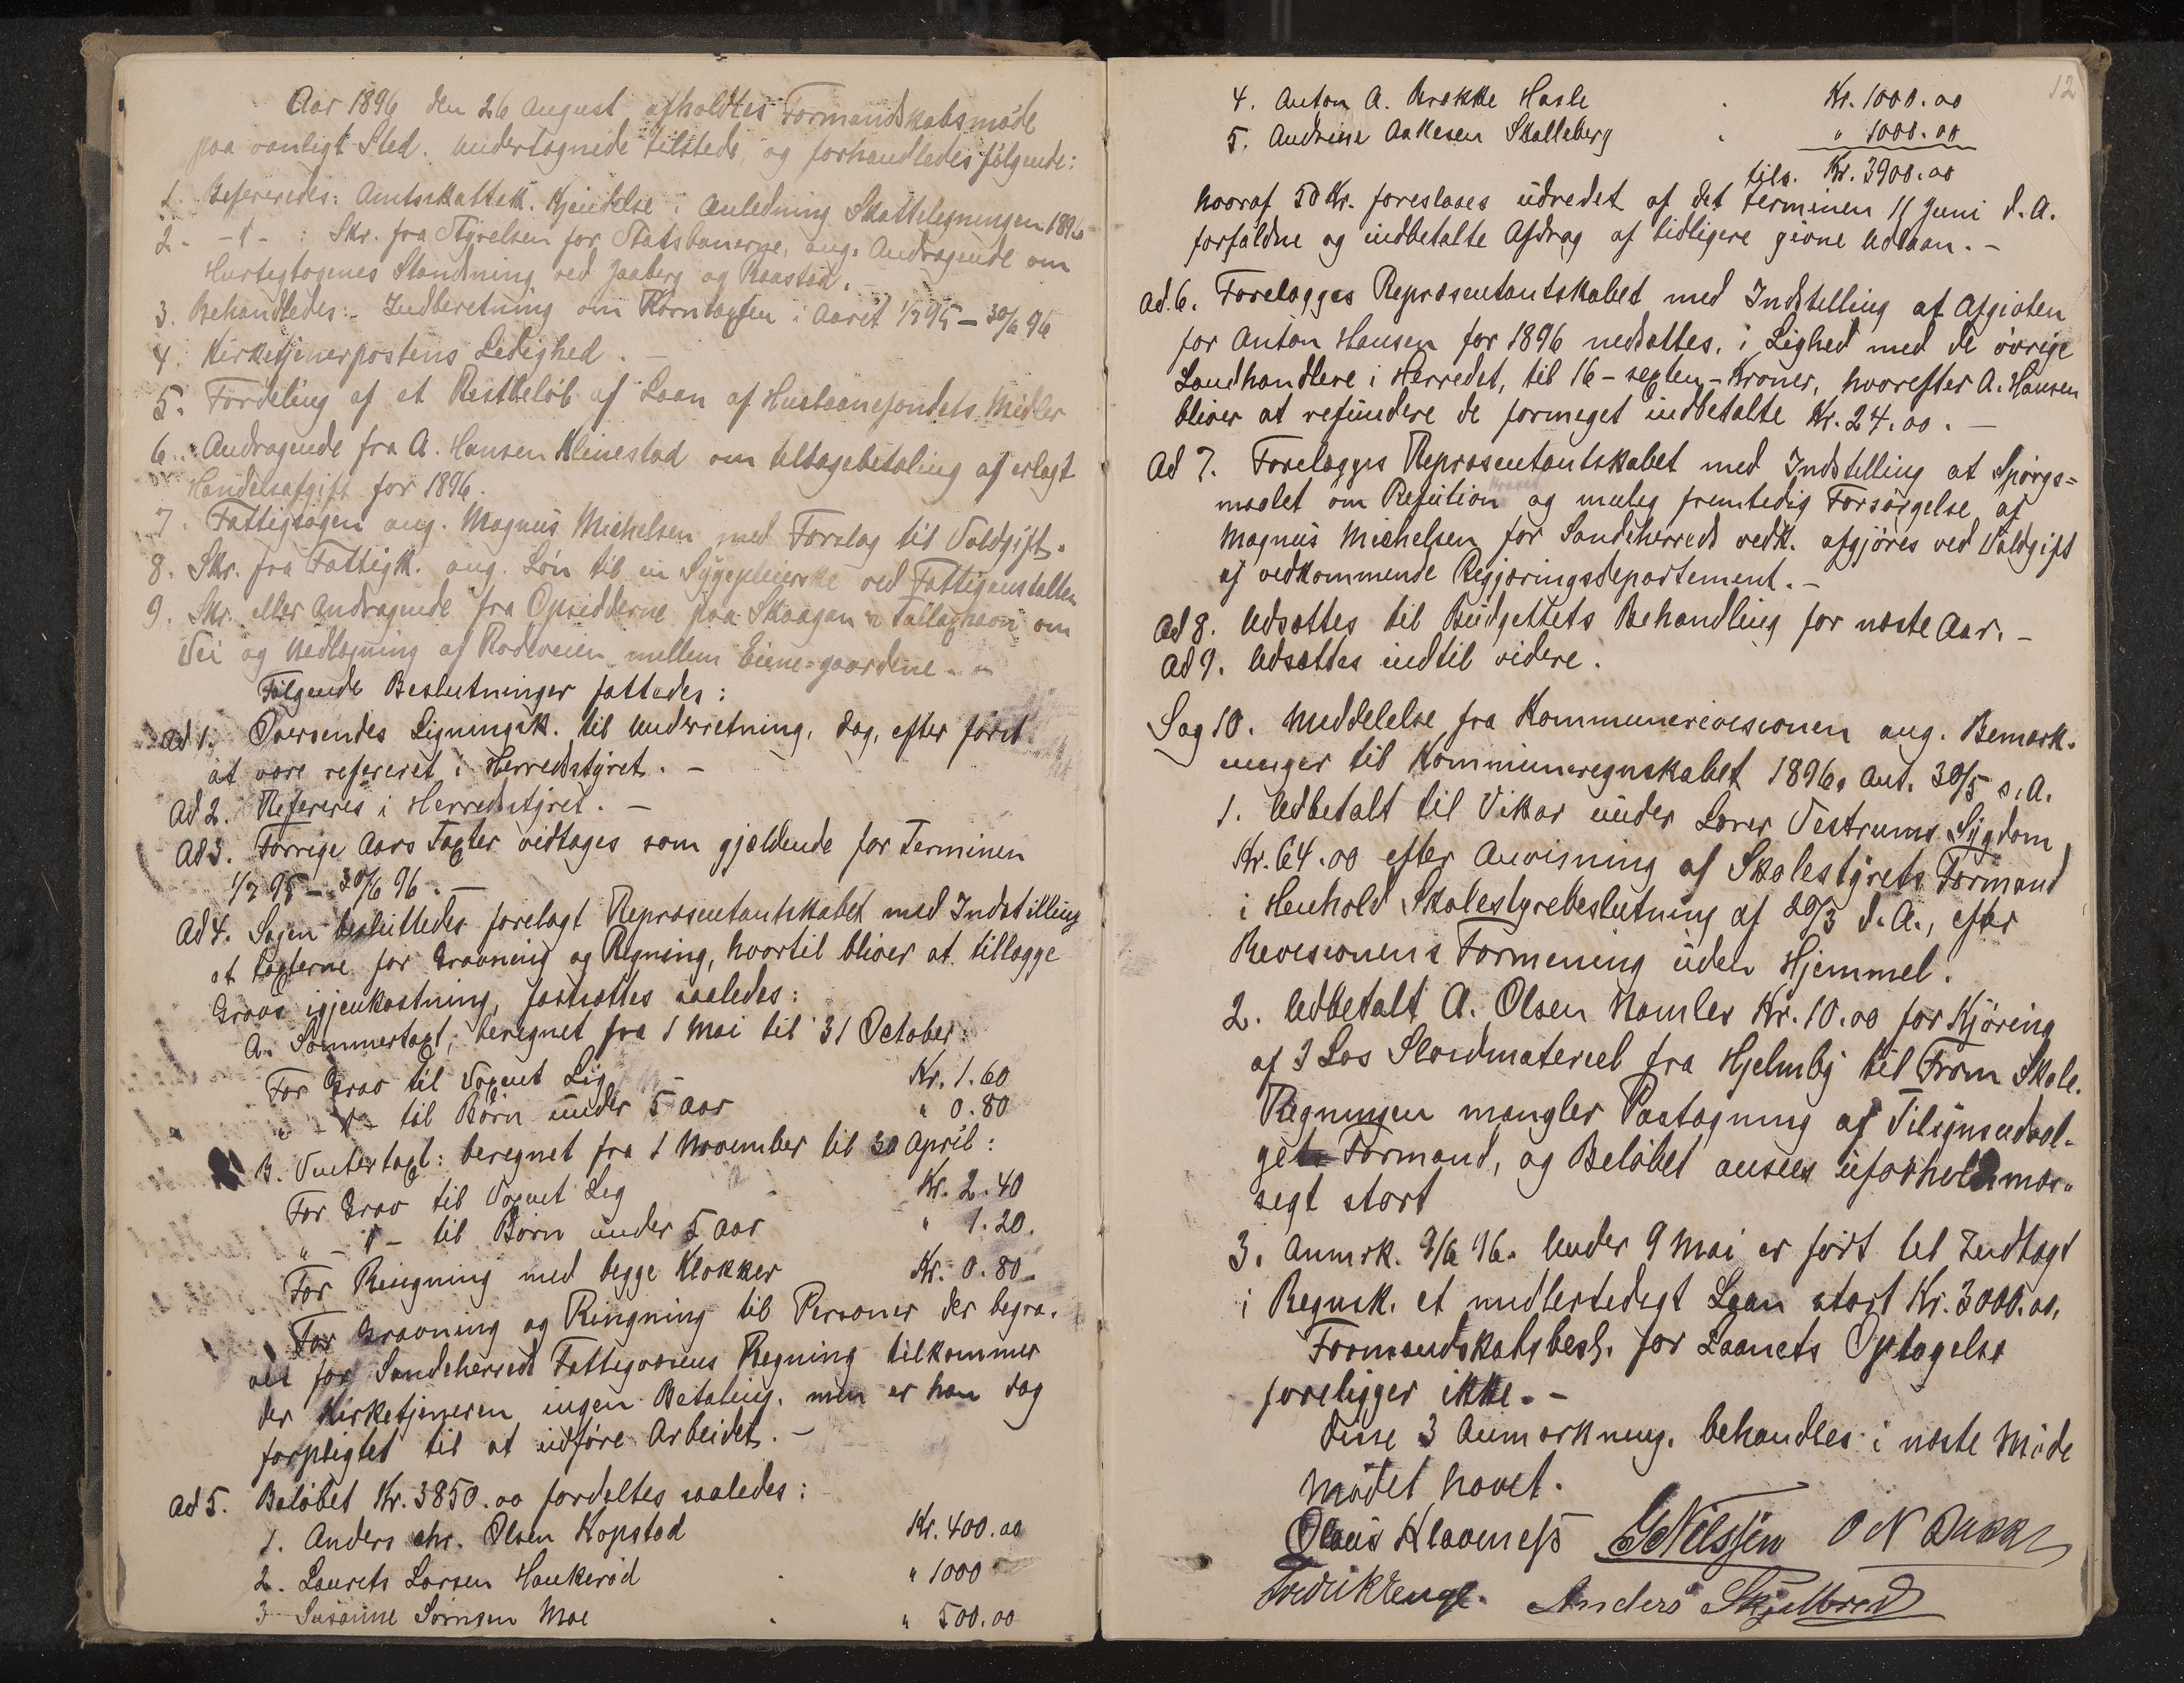 Aar 1896 den 26 August afholdtes Formandskabsmøde
paa vanligt Sted. Undertegnede tilstede, og forhandledes følgende:
1. Refereredes: Amtsskattek. Kjendelse i Anledning Skatteligningen 1896
2. -"- : Skr. fra Styrelsen for Statsbanerne, ang. Andragende om
Hurtegtogenes Standning ved Jaaberg og Raastad. -
3. Behandledes: Indberetning om Korntaxten i Aaret 1/7 95 - 30/6 96
4. Kirketjenerpostens Ledighed. -
5. Fordeling af et Restbeløb af Laan af Huslaanefondets Midler
6. Andragende fra A. Hansen Klinestad om tilbagebetaling af erlagt
Handelsafgift for 1896.
7. Fattigsagen ang. Magnus Michelsen med Forslag til Voldgift.
8. Skr. fra Fattigk. ang. Løn til en Sygepleierske ved Fattiganstalten
9. Skr. eller Andragende fra Opsidderne paa Skaagan om
Vei og Nedlægning af Rodeveien mellem Eiene-gaardene. -
Følgende Beslutninger fattedes:
Ad 1. Oversendes Ligningsk. til Underretning, dog, efter først
at være refereret i Herredsstyret. -
Ad 2. Refereres i Herredsstyret. -
Ad 3. Forrige Aars Taxter vedtages som gjældende for Terminen
1/7 95 - 30/6 96. -
Ad 4. Sagen besluttedes forelagt Repræsentantskabet med Indstilling
at taxterne for Gravning og Ringning, hvortil bliver at tillægge
Gravs igjenkastning, fastsættes saaledes:
A. Sommertaxt, beregnet fra 1 Mai til 31 October:
For Grav til Voxent Lig Kr. 1.60
" -"- til Børn under 5 Aar " 0.80
B. Vintertaxt: beregnet fra 1 November til 30 April:
For Grav til Voxent Lig Kr. 2.40
" -"- til Børn under 5 Aar " 1.20.
For Ringning med begge Klokker Kr. 0.80
For Gravning og Ringning til Personer der begra-
ves for Sandeherreds Fattigvæsens Regning tilkommer
der Kirketjeneren ingen Betaling, men er han dog
forpligtet til at udføre Arbeidet. -
Ad 5. Beløbet Kr. 3850.00 fordeltes saaledes:
1. Anders Chr. Olsen Kopstad Kr. 400.00
2. Laurits Larsen Haukerød " 1000
3 Susanne Sørnsen Moe " 500.00
12
4. Anton A. Brekke Hasle Kr. 1000.00
5. Andrine Aakesen Skalleberg " 1000.00
tils. Kr. 3900.00
hvoraf 50 Kr. foreslaaes udredet af det terminen 11 Juni d.A.
forfaldne og indbetalte Afdrag af tidligere givne Udlaan. -
Ad. 6. Forelægges Repræsentantskabet med Indstilling at Afgiften
for Anton Hansen for 1896 nedsættes, i Lighed med de øvrige
Landhandlere i Herredet, til 16 - sexten - Kroner, hvorefter A. Hansen
bliver at refundere de formeget indbetalte Kr. 24.00. -
Ad 7. Forelægges Repræsentantskabet med Indstilling at Spørgs=
maalet om Refution og mulig fremtidig Forsørgelse af
Magnus Michelsen for Sandeherreds vedk. afgjøres ved Voldgift
af vedkommende Regjæringsdepartement. -
Ad 8. Udsættes til Budgettets Behandling for næste Aar. -
Ad 9. Udsættes indtil videre.
Sag 10. Meddelelse fra Kommunerevisionen ang. Bemærk-
ninger til Kommuneregnskabet 1896. Ant. 30/5 s.A.
1. Udbetalt til Vikar under Lærer Vestrums Sygdom,
Kr. 64.00 efter Anvisning af Skolestyrets Formand
i Henhold Skolestyrebeslutning af 20/3 d.A., efter
Revisionens Formening uden Hjemmel.
2. Udbetalt A. Olsen Namløs Kr. 10.00 for Kjøring
af 3 Læs Sløidmateriel fra Hjelmby til Fron Skole.
Regningen mangler Paategning af Tilsynsudval-
gets Formand, og Beløbet ansees uforholdsmæs-
sigt stort
3. Anmrk. 9/6 96. Under 9 Mai er ført til Indtægt
i Regnsk. et midlertidigt Laan stort Kr. 3000.00.
Formandskabsbesl. for Laanets Optagelse
foreligger ikke. -
Disse 3 Anmærkning. behandles i næste Møde
Mødet hævet.
Olaus Klaveness G Nilssen O N Bakke
Fredrik Lenge. Anders Skjelbred